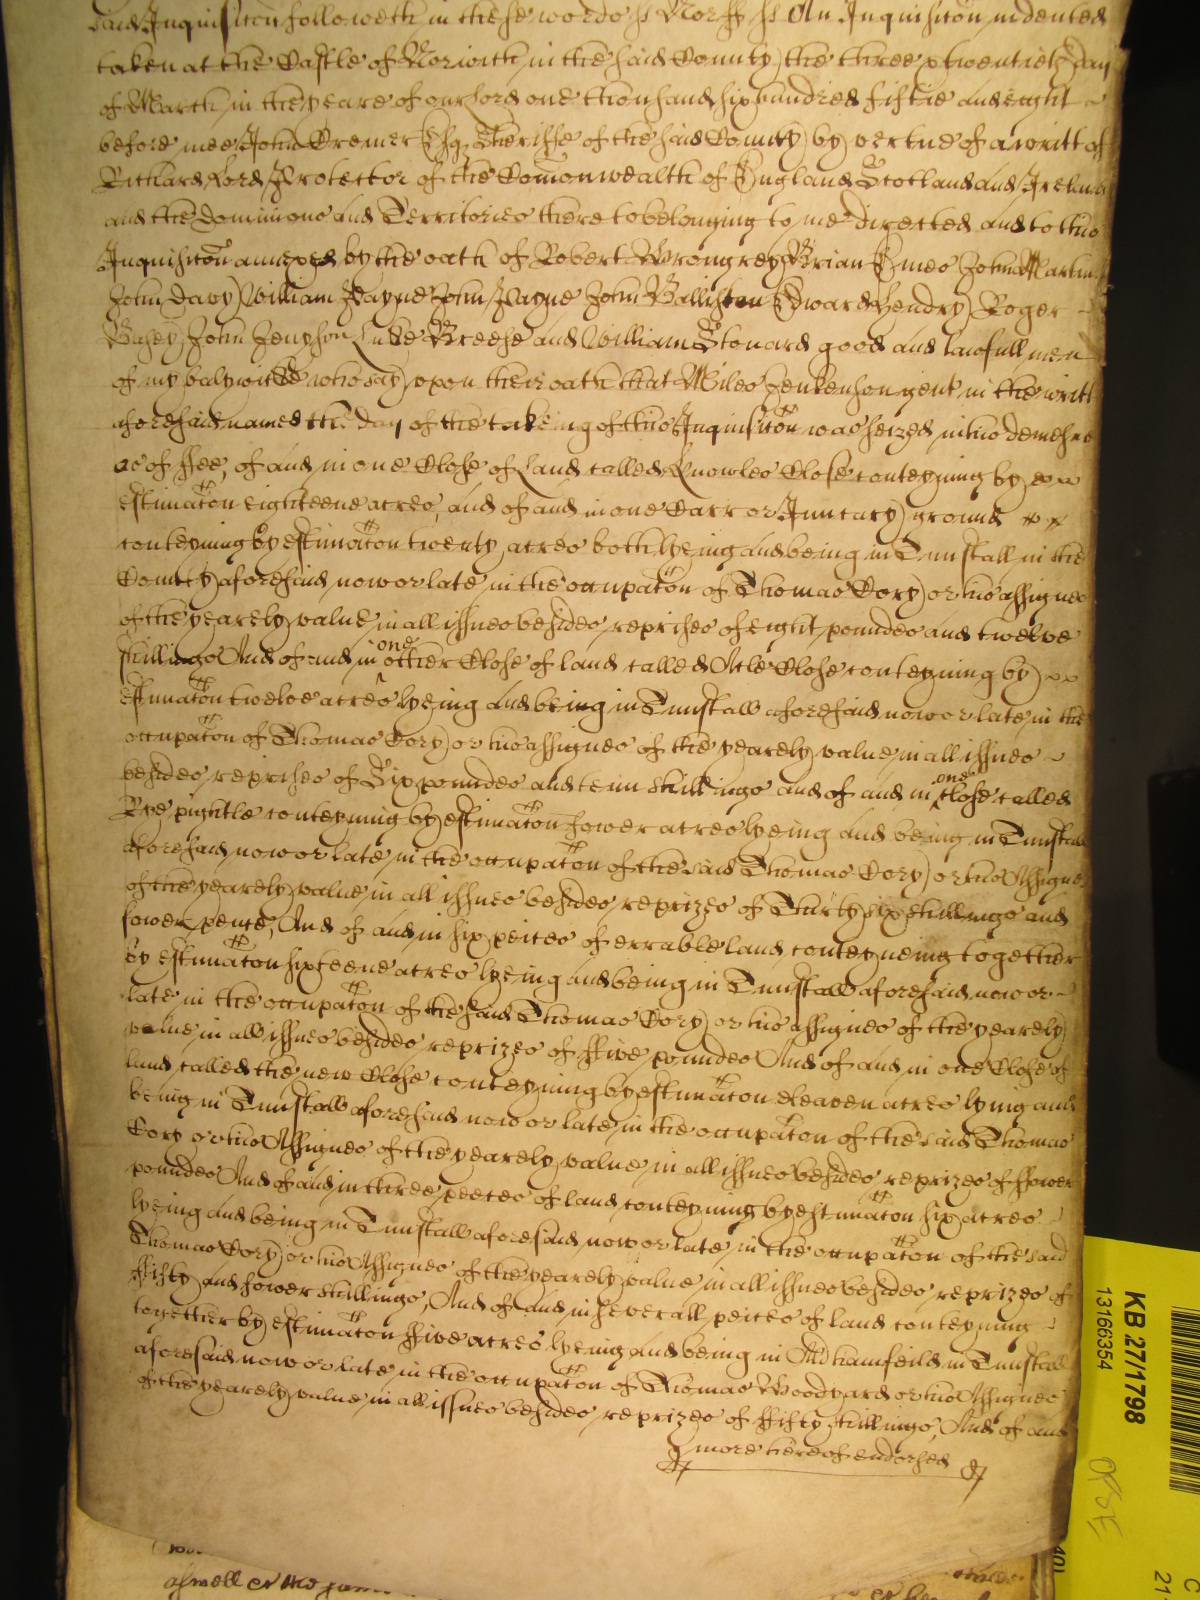 said Inquisicon followeth in these words ss Norff ss An Inquisicon indented
taken at the Castle of Norwich in the said County the three & twentieth day
of March in the yeare of our Lord one thousand six hundred fiftie and eight
before mee John Cremer Esqr Sheriffe of the said County by vertue of a writt of
Richard Lord Protector of the Comonwealth of England Scotland and Ireland
and the Dominions and Territories there to belonging to me directed and to this
Inquisicon annexed by the oath of Robert Wrongrey Brian Emes John Martin
John Davy William Payne John Payne John Balliston Edward Hendry Roger
John Jenyson Luke Breese and William Stonard good and lawfull men
of my balywick who say upon their oath that Miles Jenkenson gent in the writt
aforesaid named the day of the takeing of this Inquisicon was seized in his demesne
as of ffee, of and in one Close of Land called Knowles Close conteyning by
estimacon eighteene acres, and of and in one Carr or ground
conteyning by estimacon twenty acres both lyeing and being in Tunstall in the
County aforesaid now or late in the occupacon of Thomas Cory or his assignes
of the yearely value in all issues besides reprises of eight poundes and twelve
shillings And of and in one other Close of land called Close conteyning by
estimacon twelve acres lyeing and being in Tunstall aforesaid now or late in the
occupacon of Thomas Cory or his assignes of the yearely value in all issues
besides reprises of Six poundes and tenn shillings and of and in one Close called
Rye pightle conteyning by estimacon fower acres lyeing and being in Tunstall
aforesaid now or late in the occupacon of the said Thomas Cory or his Assignes
of the yearely value in all issues besides reprizes of Thirty six shillings and
fower pence, And of and in six peices of errable land conteyneing together
by estimacon sixteene acres lyeing and being in Tunstall aforesaid now or
late in the occupacon of the said Thomas Cory or his assignes of the yearely
value in all issues besides reprizes of ffive poundes And of and in one Close of
land called the new Close conteyning by estimacon eleaven acres lying and
being in Tunstall aforesaid now or late in the occupacon of the said Thomas
Cory or his Assignes of the yearely value in all issues besides reprizes of ffower
poundes And of and in three peeces of land conteyning by estimacon six acres
lyeing and being in Tunstall aforesaid now or late in the occupacon of the said
Thomas Cory or his Assignes of the yearely value in all issues besides reprizes of
ffifty and fower shillings, And of and in severall peices of land conteyning
together by estimacon ffive acres lyeing and being in in Tunstall
aforesaid now or late in the occupacon of Thomas Woodyard or his Assignes
of the yearely value in all issues besides reprizes of ffifty shillings, And of and
more hereof endorsed
KB 27/1798
13166354